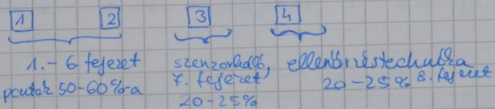 1 2 3 4
1. - 6 fejezet szenzorhálók, ellenőrzéstechnika
pontok 50-60%-a 7. fejezet 20-25% 8. fejezet
20-25%